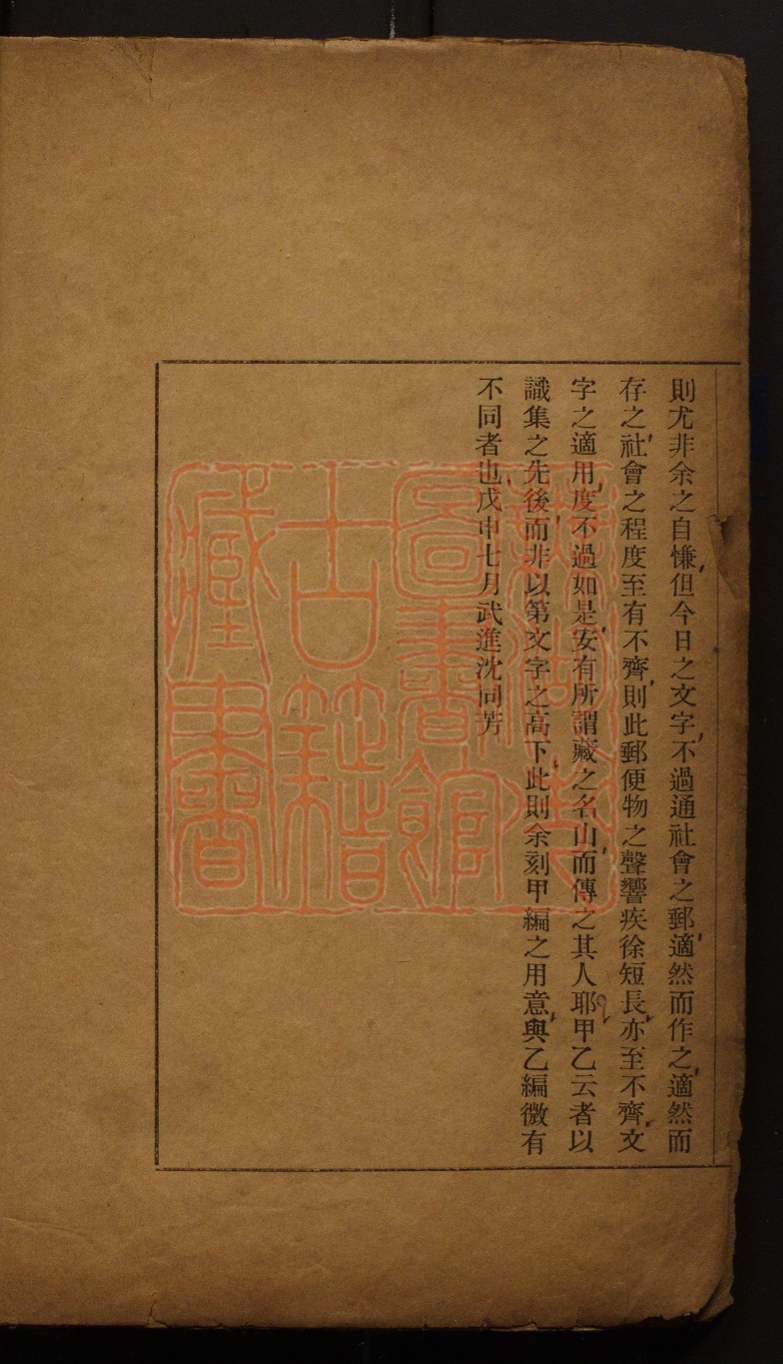 則尤非余之自慊但今日之文字不過通社會之郵適然而作之適然而
存之社會之程度至有不齊則此郵便物之聲響疾徐短長亦至不齊文
字之適用度不過如是安有所謂藏之名山而傳之其人耶甲乙云者以
識集之先後而非以第文字之高下此則余刻甲編之用意與乙編微有
不同者也戊申七月武進沈同芳
圖書館
古籍
藏書